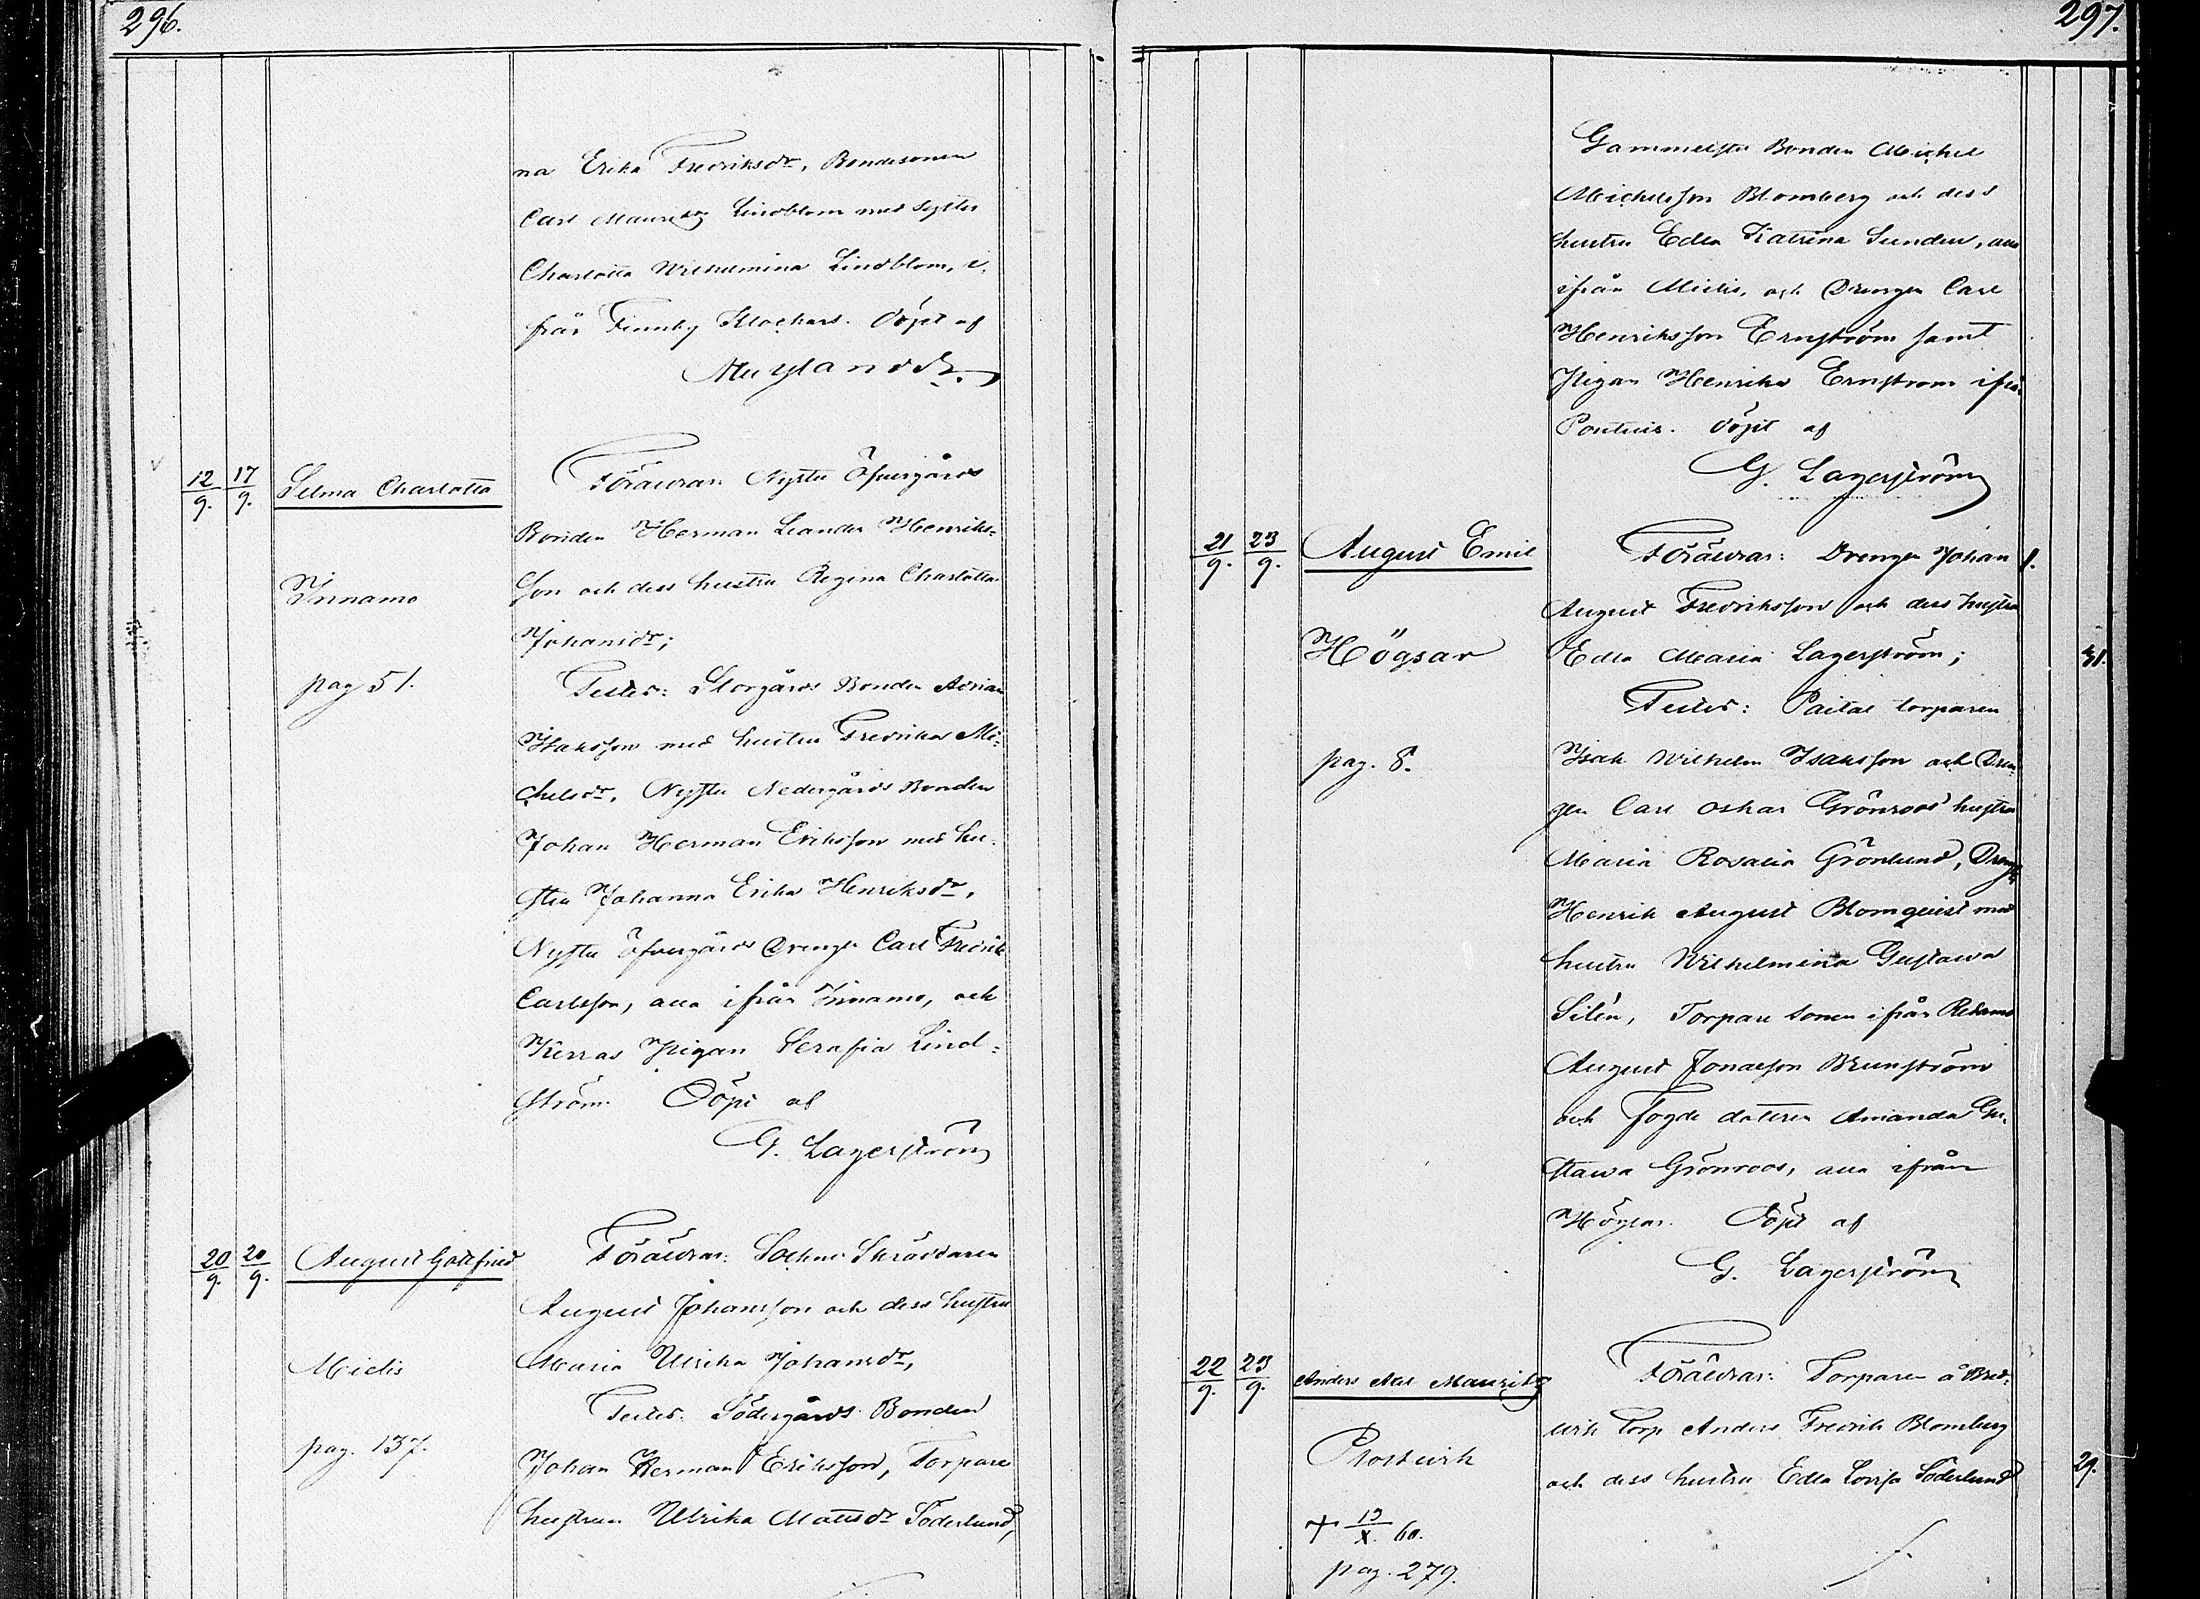 296.
na Erika Fredriksdr, Bondesonen
Carl Mauritz Lindblom med syster
Charlotta Wilhelmina Lindblom, i-
från Finnby Klockars. Döpt af
12/9. 17/9. Selma Charlotta
Föräldrar: Nystu Öfvergårds
Bonden Herman Leander Henriks-
son och dess hustru Regina Charlotta
Innamo
Johansdr;
pag 51.
Testes: Storgårds Bonden Adrian
Isaksson med hustru Fredrika Mi-
chelsdr, Nystu Nedergårds Bonden
Johan Herman Eriksson med hu-
stru Johanna Erika Henriksdr,
Nystu Öfvergårds Drengen Carl Fredrik
Carlsson, alla ifrån Innamo, och
Kirras Pigan Serafia Lind-
ström. Döpt af
G. Lagerström
20/9. 20/9. August Gottfried
Föräldrar: Sockne Skräddaren
August Johansson och dess hustru
Mielis
Maria Ulrika Johansdr,
Testes: Södergårds Bonden
pag. 137.
Johan Herman Eriksson, Torpare
hustrun Ulrika Mattsdr Söderlund,
297.
Gammelstu Bonden Michel
Michelsson Blomberg och dess
hustru Edla Katrina Sundell, alla
ifrån Mielis, och Drengen Carl
Henriksson Ernström samt
Pigan Henrika Ernström ifrån
döpt af
G. Lagerström
21/9. 23/9. August Emil
Föräldrar: Drengen Johan 1.
August Fredriksson och dess hustru
Högsar
Edla Maria Lagerström; 31.
Testes: Paital torparen
pag. 8.
Isak Wilhelm Isaksson och Dren-
gen Carl Oskar Grönroos' hustru
Maria Rosalia Grönlund, Drengen
Henrik August Blomqvist med
hustru Wilhelmina Gustawa
Silén, Torpare sonen ifrån
August Jonasson Brunström
och Fogde dottren Amanda Gu-
stawa Grönroos, alla ifrån
Högsar. Döpt af
G. Lagerström
22/9. 23/9. Anders Axel Mauritz
Föräldrar: Torparen å Bred-
wik Torp Anders Fredrik Blomberg
Prostwik
och dess hustru Edla Lovisa Söderlund 29.
† 19/X. 60.
pag. 279.